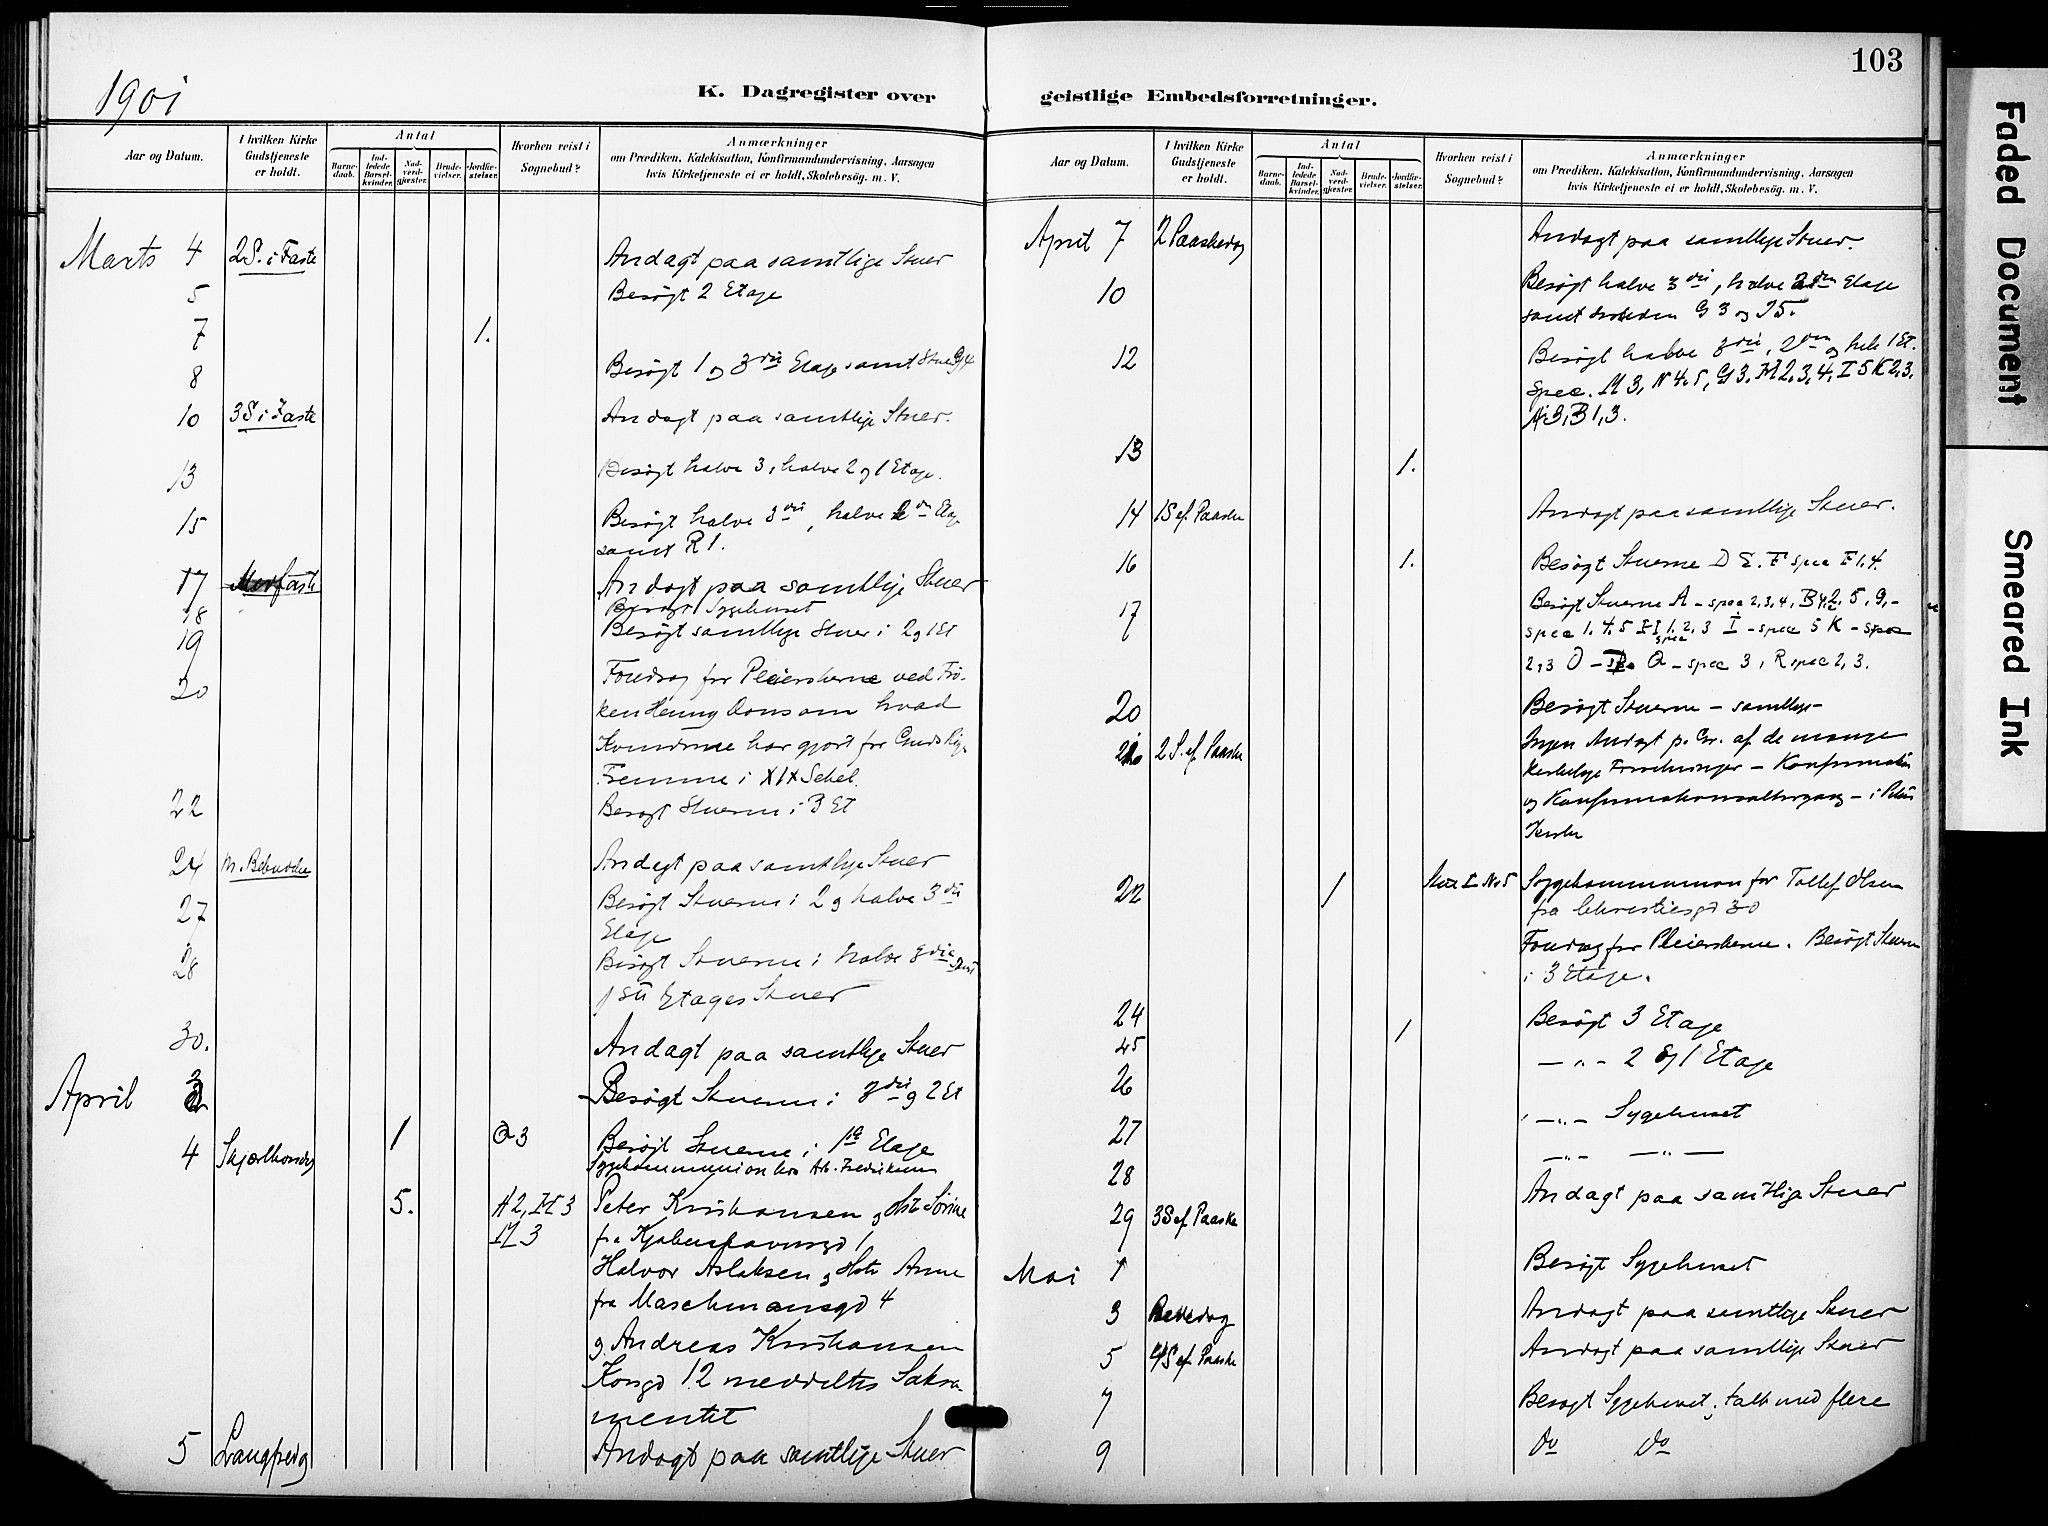 103
1901
K. Dagregister over
geistlige Embedsforretninger.
Aar og Datum.
I hvilken Kirke Gudstjeneste er holdt.
Antal
Barnedaab.
Indledede Barselkvinder.
Nadverdgjæster.
Brudevielser.
Jordfæstelser.
Hvorhen reist i Sognebud?
Anmærkninger
om Prædiken, Katekisation, Konfirmandundervisning, Aarsagen
hvis Kirketjeneste ei er holdt, Skolebesøg. m. V.
Marts 4 2 S. i Faste Andagt paa samtlige Stuer
5 Besøgt 2 Etage
7 1.
8 Besøgt 1 og 3die Etage samt Stue
10 3 S i Faste Andagt paa samtlige Stuer.
13 Besøgt halve 3, halve 2 og 1 Etage.
15 Besøgt halve 3die, halve 2den Etage
samt R 1.
17 Midfaste Andagt paa samtlige Stuer
18 Besøgt Sygehuset
19 Besøgt samtlige Stuer i 2 og 1 Et
20 Foredrag for Pleierskerne ved Frø-
ken Henny Dons om hvad
Kvinderne har gjort for Guds Rig.
Fremme i XIX Sekel.
22 Besøgt Stuerne i 3 Et
24 M. Bebudelse Andagt paa samtlige Stuer
27 Besøgt Stuerne i 2 og halve 3die
Etage
28 Besøgt Stuerne i halve 3die samt
1ste Etages Stuer
30. Andagt paa samtlige Stuer
April 3 Besøgt Stuerne i 3die og 2 Et
4 Skjærthorsdag 1 Q 3 Besøgt Stuerne i 1e Etage
Sygekommunion hos Arb. Fredriksen
5. A 2, H 3 Peter Kristiansen og Hstr Sørine
H 3 fra Kjøbenhavnsgd 1
Halvor Aslaksen og Hstr Anne
fra Maschmansgd 4
og Andreas Kristiansen
Kongsgd 12 meddeltes Sakra-
mentet
5 Langfredag Andagt paa samtlige Stuer
Aar og Datum.
I hvilken Kirke Gudstjeneste er holdt.
Antal
Barnedaab.
Indledede Barselkvinder.
Nadverdgjæster.
Brudevielser.
Jordfæstelser.
Hvorhen reist i Sognebud?
Anmærkninger
om Prædiken, Katekisation, Konfirmandundervisning, Aarsagen
hvis Kirketjeneste ei er holdt, Skolebesøg. m. V.
April 7 2 Paaskedag Andagt paa samtlige Stuer.
10 Besøgt halve 3die, halve 2den Etage
samt desuden G 3 og I 5.
12 Besøgt halve 3die, 2den og hele 1 Et.
Spec. M 3, N 4. 5, G 3, H 2, 3, 4, I 5 K 2, 3,
A 3, B 1, 3.
13 1.
14 1 S ef. Paaske Andagt paa samtlige Stuer.
16 1. Besøgt Stuerne D E. F spec F 1. 4.
17 Besøgt Stuerne A – spec 2, 3, 4, B
spec 1. 4. 5 H spec 1. 2, 3 I – spec 5 K – spec
2, 3 O – Q – spec 3, R spec 2, 3.
20 Besøgt Stuerne – samtlige –
21 2 S. ef. Paaske Ingen Andagt p. Gr. af de mange
kirkelige Forretninger – Konfirmation
og Konfirmationsaltergang – i Petri
Kirke
22 1 Stue I No 5 Sygekommunion for Tollef Olsen
fra Christiesgd 30
Foredrag for Pleierskerne. Besøgt Stuerne
i 3 Etage.
24 Besøgt 3 Etage
25 1 – „ – 2 og 1 Etage
26
27 – „ – Sygehuset
28 – „ – – „ –
29 3 S ef. Paaske Andagt paa samtlige Stuer
Mai 1 Besøgt Sygehuset
3 Bededag Andagt paa samtlige Stuer
5 4 S ef. Paaske Andagt paa samtlige Stuer
7 Besøgt Sygehuset, talt med flere
9 Do Do
Faded Document
Smeared Ink